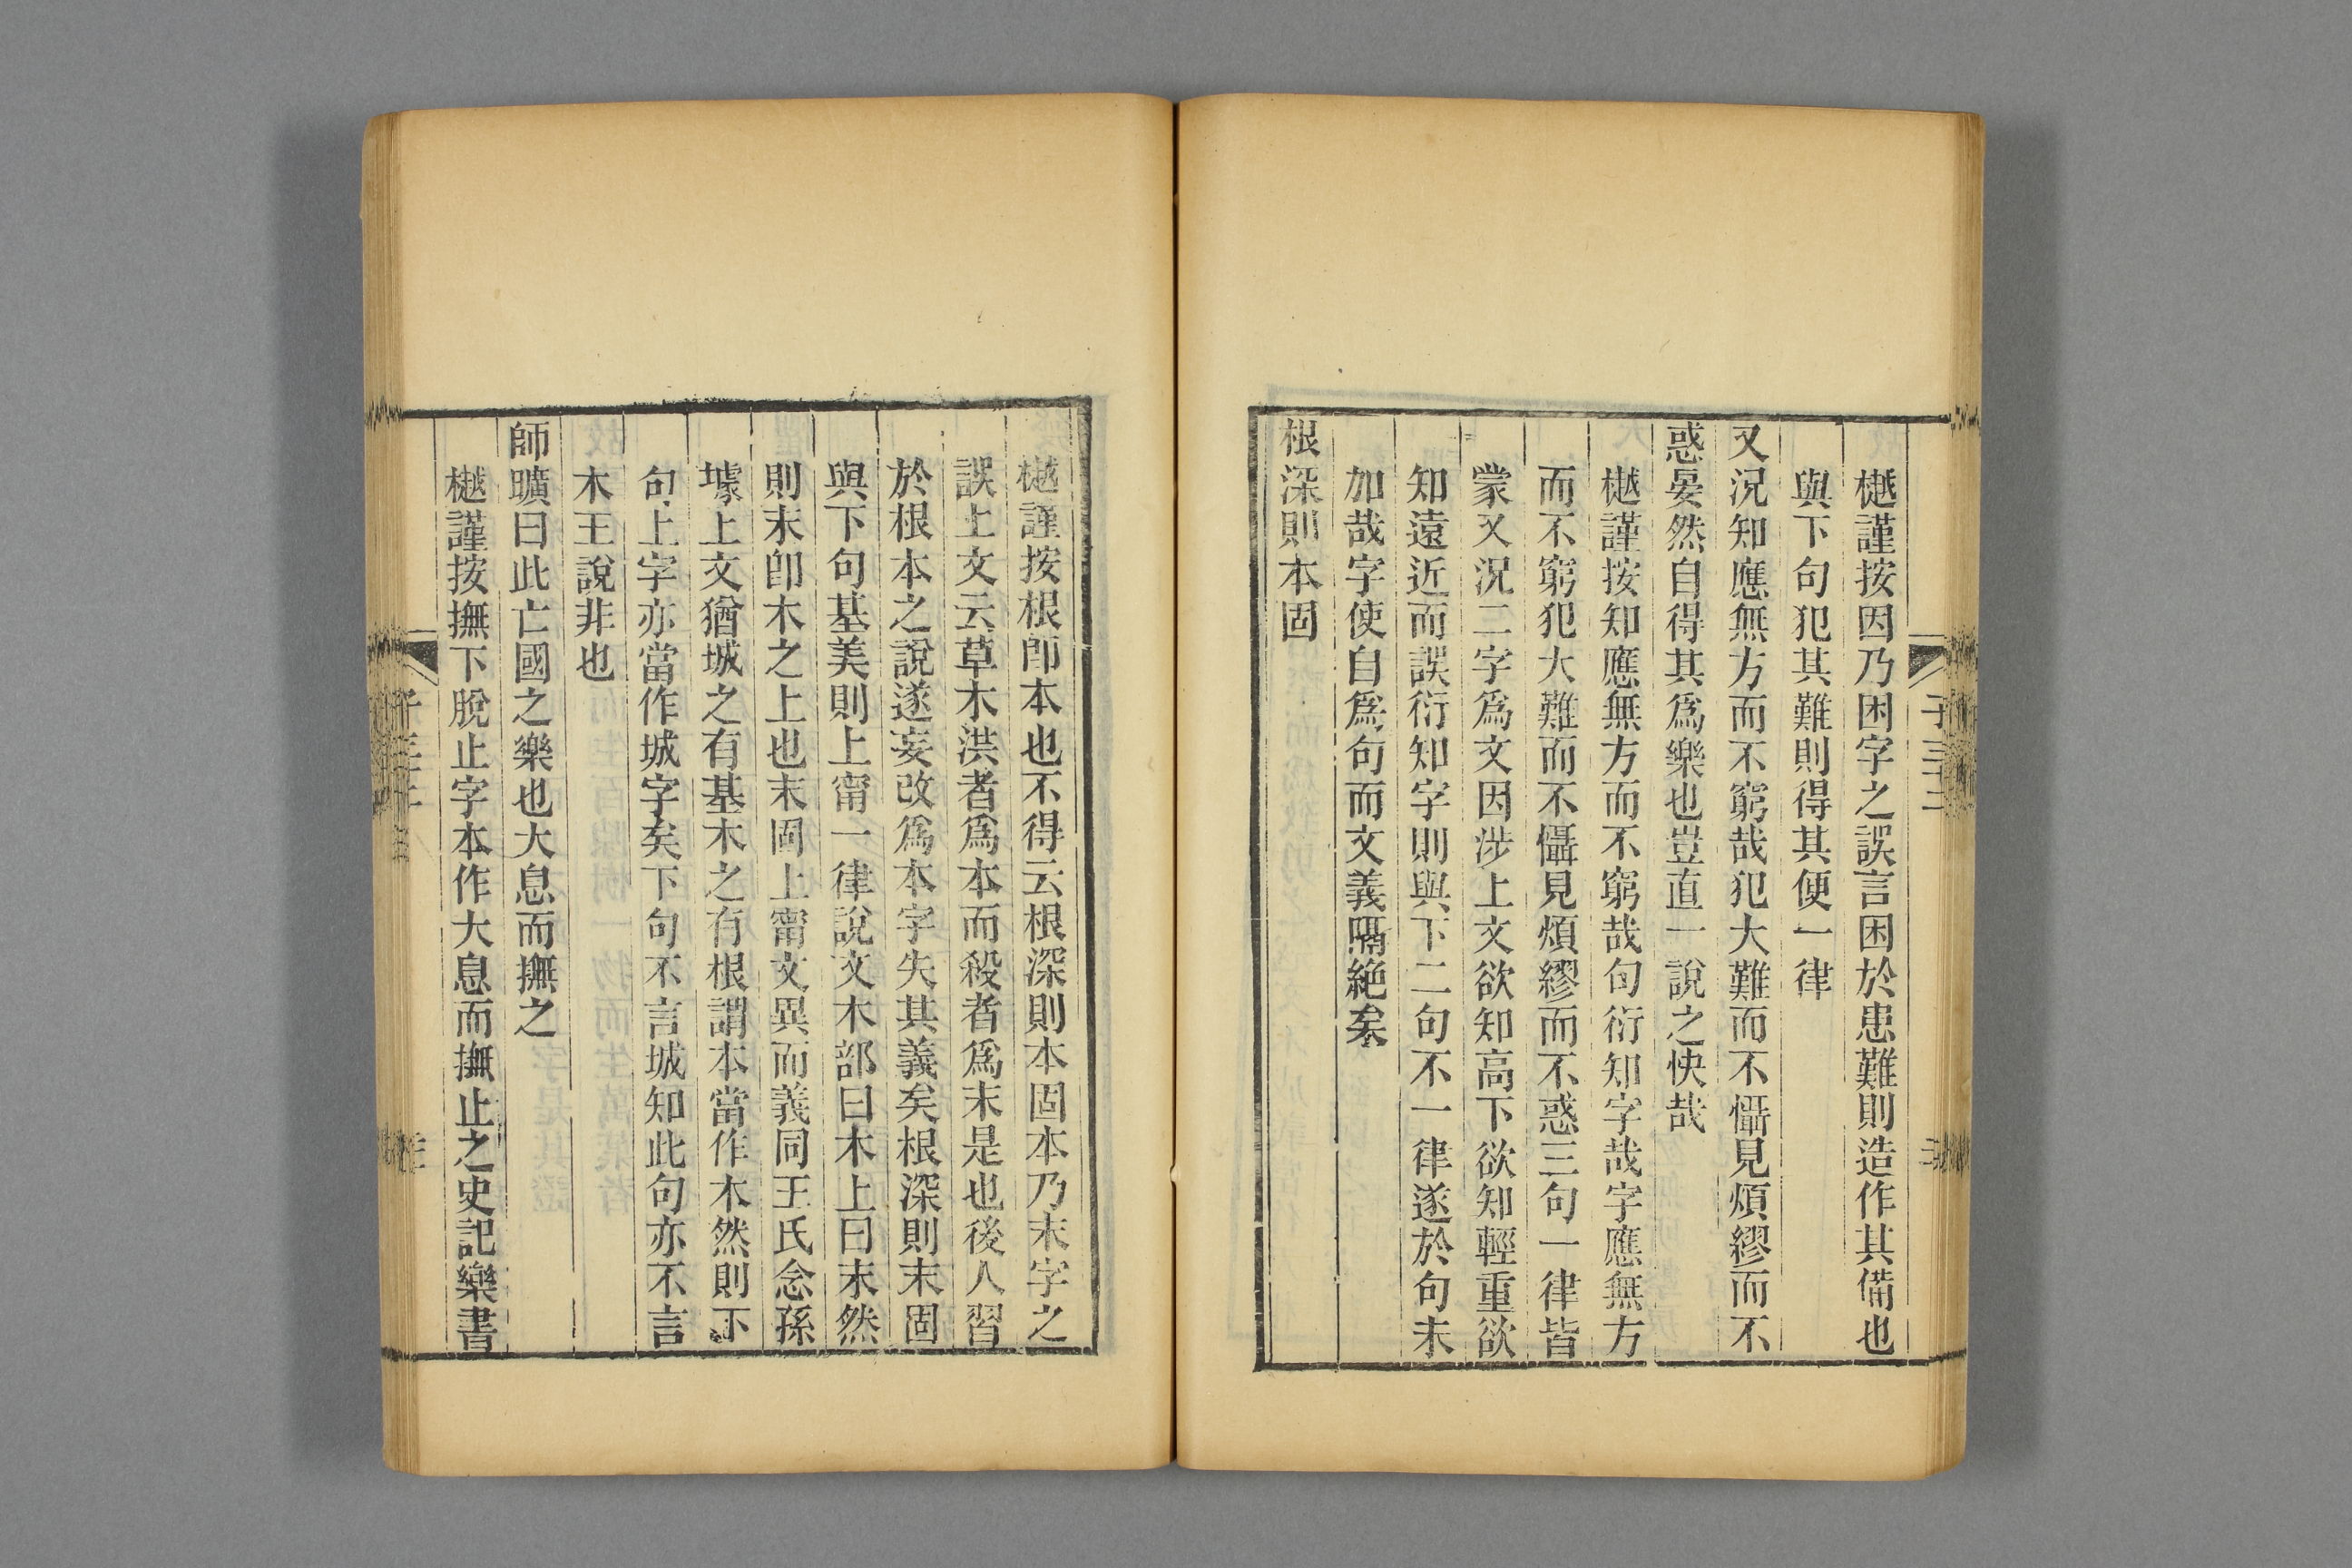 樾謹按因乃困字之誤言困於患難則造作其備也
與下句犯其難則得其便一律
又況知應無方而不窮哉犯大難而不懾見煩繆而不
惑晏然自得其爲樂也豈直一說之快哉
樾謹按知應無方而不窮哉句衍知字哉字應無方
而不窮犯大難而不懾見煩繆而不惑三句一律皆
蒙又況二字爲文因涉上文欲知高下欲知輕重欲
知遠近而誤衍知字則與下二句不一律遂於句末
加哉字使自爲句而文義隔絶矣
根深則本固
樾謹按根卽本也不得云根深則本固本乃末字之
誤上文云草木洪者爲本而殺者爲末是也後人習
於根本之說遂妄改爲本字失其義矣根深則末固
與下句基美則上甯一律說文木部曰木上曰末然
則末卽木之上也末固上甯文異而義同王氏念孫
據上文猶城之有基木之有根謂本當作木然則下
句上字亦當作城字矣下句不言城知此句亦不言
木王說非也
師曠曰此亡國之樂也大息而撫之
樾謹按撫下脫止字本作大息而撫止之史記樂書